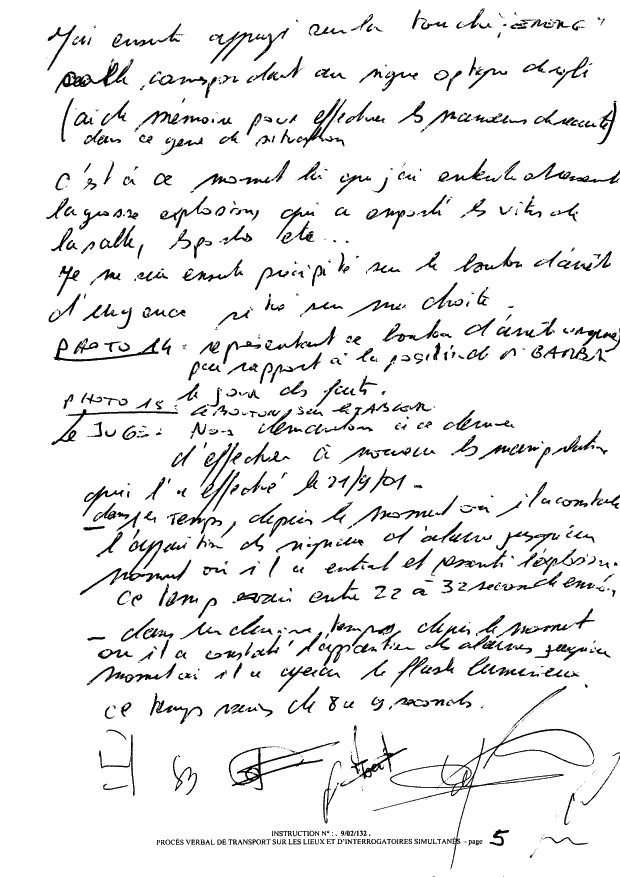 J'ai ensuite appuyé sur la touche "EMERG"
salle, correspondant au signe optique
(aide mémoire pour effectuer les manœuvres de sécurité)
dans ce genre de situation
c'est à ce moment là que j'ai entendu
la grosse explosion, qui a emporté les vitres de
la salle, les portes etc...
Je me suis ensuite précipité sur le bouton d'arrêt
d'urgence situé sur ma droite.
PHOTO 14 : représentant ce bouton d'arrêt urgence
par rapport à la position de M BARBA
le jour des faits.
PHOTO 15 : LE BOUTON, sur le
Le JUGE : Nous demandons à ce dernier
d'effectuer à nouveau les manipulations
qu'il a effectué le 21/9/01 -
- dans temps, depuis le moment où il a constaté
l'apparition des signaux d'alarme jusqu'au
moment où il a entendu et ressenti l'explosion.
Ce temps entre 22 à 32 secondes environ
- dans un temps, depuis le moment
où il a constaté l'apparition des alarmes jusqu'au
moment où il a aperçu le flash lumineux.
ce temps de 8 à 9 secondes.
INSTRUCTION N° : . 9/02/132 .
PROCÈS VERBAL DE TRANSPORT SUR LES LIEUX ET D'INTERROGATOIRES SIMULTANÉS - page 5